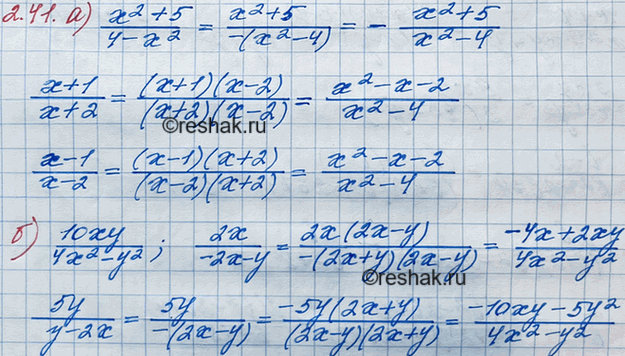 2.41. а) (x²+5)/(4-x²) = (x²+5)/(-(x²-4)) = - (x²+5)/(x²-4)
(x+1)/(x+2) = ((x+1)(x-2))/((x+2)(x-2)) = (x²-x-2)/(x²-4)
©reshak.ru
(x-1)/(x-2) = ((x-1)(x+2))/((x-2)(x+2)) = (x²-x-2)/(x²-4)
б) 10xy/(4x²-y²); 2x/(-2x-y) = (2x(2x-y))/(-(2x+y)(2x-y)) = (-4x+2xy)/(4x²-y²)
©reshak.ru
5y/(y-2x) = 5y/(-(2x-y)) = (-5y(2x+y))/((2x-y)(2x+y)) = (-10xy-5y²)/(4x²-y²)